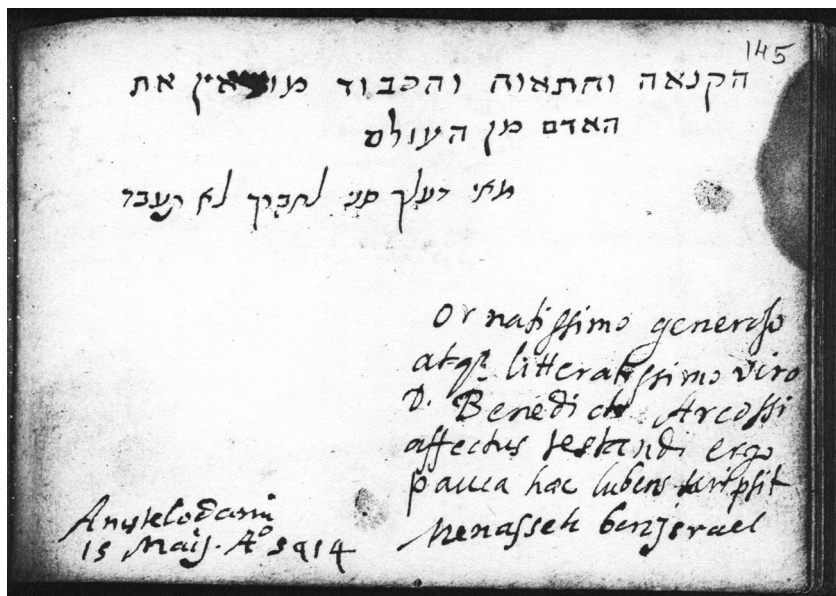 145
הקנאה והתאוה והכבוד מוציאין את
האדם מן העולם
מאי דעלך סני לחברך לא תעבד
Ornatissimo generoso
atqꝫ litteratissimo viro
D. Benedicto Arcossi
affectus testandi ergo
pauca hac lubens scripsit
Menasseh ben Jsrael
Amstelodami
15 Maij. Aº 5414